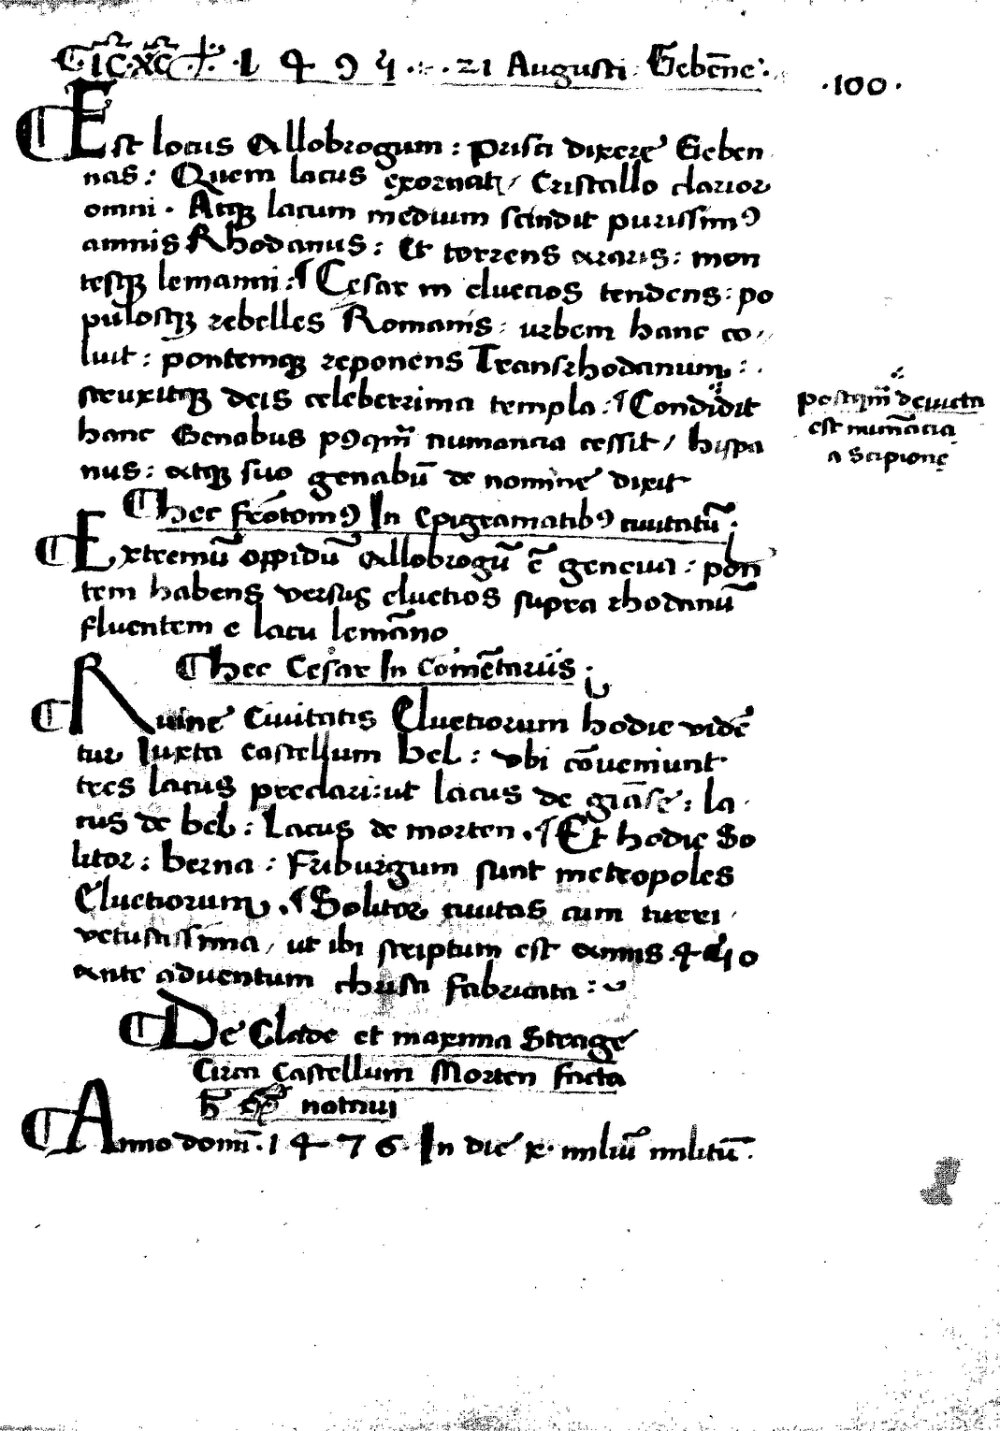 IC̅. XC̅. 1495 ∴ .21 Augusti. Gebēne:.
.100.
Est locus Allobrogum: prisci dixere Geben
nas: Quem lacus exornat, Cristallo clarior
omni. Atqꝫ lacum medium scindit purissimꝰ
amnis Rhodanus: Et torrens araris: mon
tesqꝫ lemanni: Cesar in eluecios tendens: po
pulosqꝫ rebelles Romanis: urbem hanc co
luit: pontemqꝫ reponens Transrhodanum:.
struxitqꝫ deis celeberrima templa: Condidit
hanc Genabus pꝰqm̄ numancia cessit/ hispa
nus: atqꝫ suo genabū de nomine dixit
postqm̄ deuicta
est numācia
a scipione
hec Frōtomꝰ In Epigramatibꝰ ciuitatū.
Extremū oppidū Allobrogū ē geneua: pon
tem habens versus eluetios supra rhodanū
fluentem e lacu lemāno
hec Cesar In Comētariis.
Ruine Ciuitatis Eluetiorum hodie vidē
tur Iuxta castellum bel: vbi cōueniunt
tres lacus preclari: ut lacus de grāse: la
cus de bel: Lacus de morten. Et hodie So
litor: berna: Friburgum sunt metropoles
Eluetiorum. Solitor ciuitas cum turri
vetustissima, ut ibi scriptum est annis
ante aduentum christi fabricata:
De Clade et maxima Strage
Circa Castellum Morten facta
notaui
Anno domī. 1476. In die x. miliū militū.